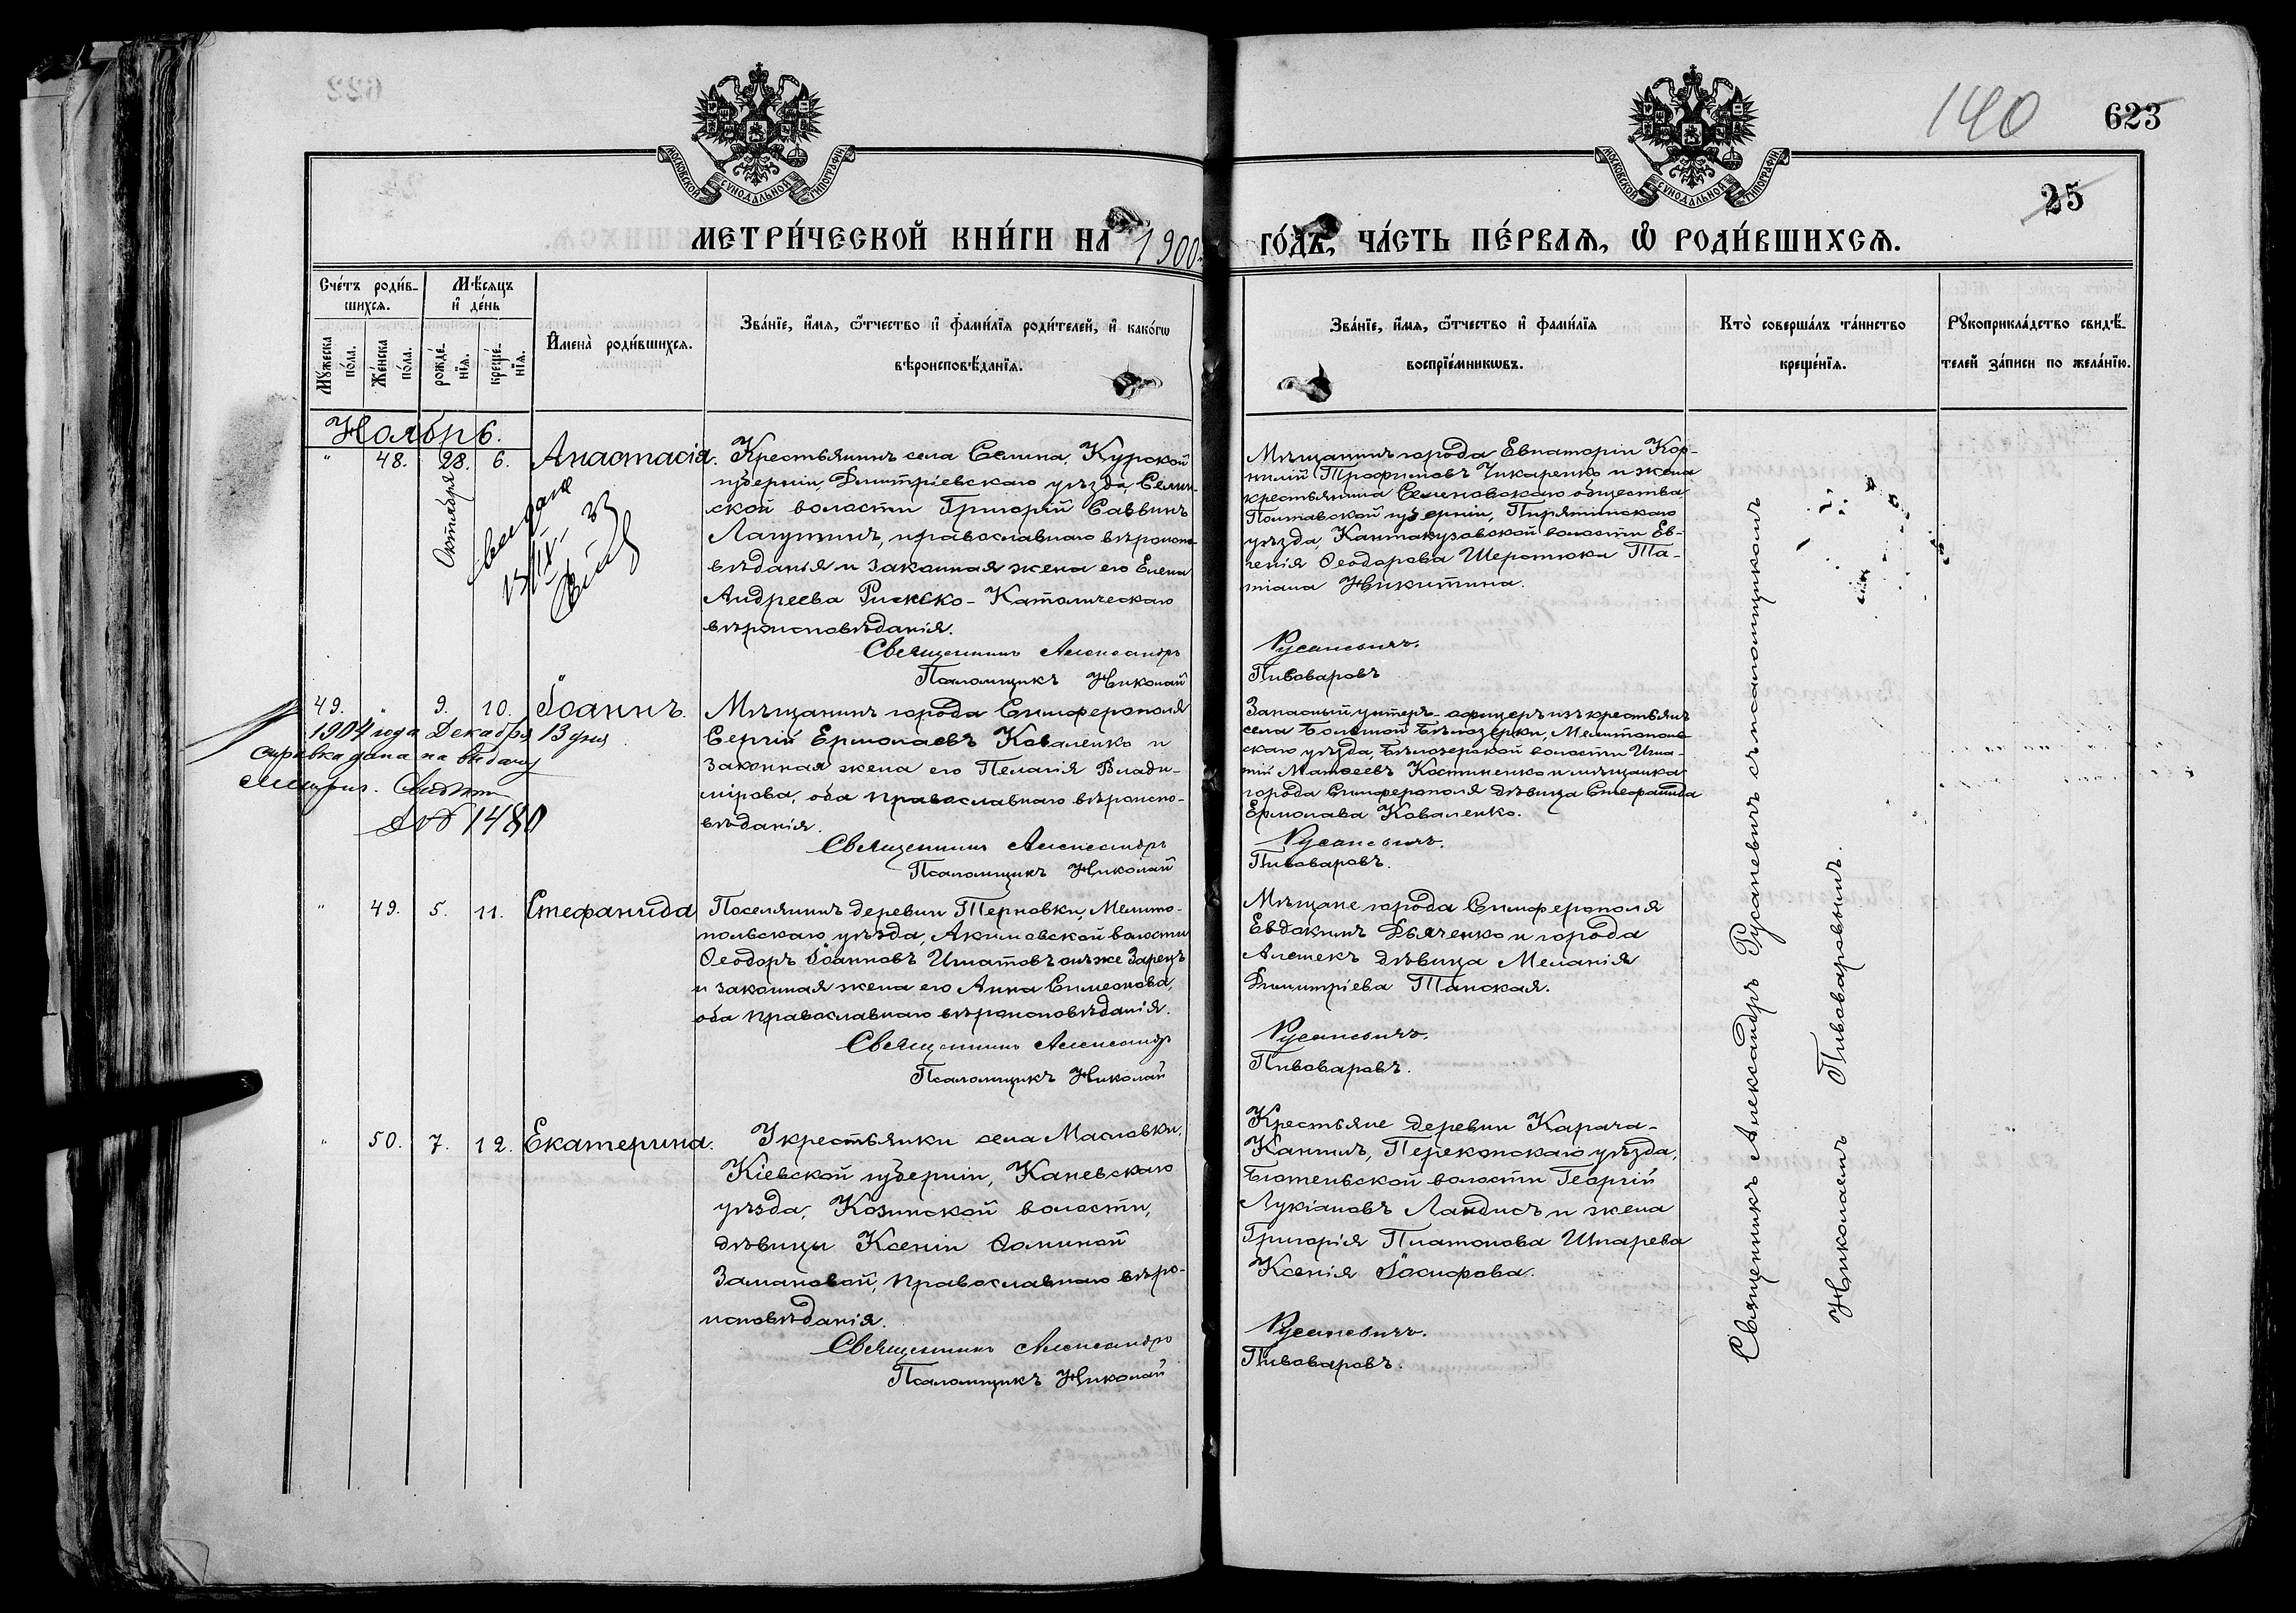 140
623
25
МОСКОВСКОЙ СУНОДАЛЬНОЙ ТИПОГРАФІИ
МОСКОВСКОЙ СУНОДАЛЬНОЙ ТИПОГРАФІИ
МЕТРИ́ЧЕСКОЙ КНИ́ГИ НА 1900
ГО́ДЪ, ЧА́СТЬ ПЕ́РВАѦ, Ѡ҆ РОДИ́ВШИХСѦ.
Сче́тъ роди́в-
шихсѧ.
Мѣ́сѧцъ
и҆ де́нь
Мꙋ́жеска
по́ла.
Же́нска
по́ла.
рожде́-
нїѧ.
креще́-
нїѧ.
И҆мена̀ роди́вшихсѧ.
Зва́нїе, и҆́мѧ, ѻ҆́тчество и҆ фами́лїѧ роди́телей, и҆ како́гѡ
вѣроисповѣ́данїѧ.
Зва́нїе, и҆́мѧ, ѻ҆́тчество и҆ фами́лїѧ
воспрїе́мникѡвъ.
Кто̀ соверша́лъ та́инство
креще́нїѧ.
Рꙋкоприкла́дство свидѣ́-
телей за́писи по жела́нїю.
Ноябрь.
" 48. 28. 6. Анастасія.
Октября
13/IX - 23
Крестьянинъ села Селина, Курской
губерніи, Дмитріевскаго уѣзда, Селин-
ской волости Григорій Саввинъ
Лагутинъ, православнаго вѣроиспо-
вѣданія и законная жена его Елена
Андреева Римско-Католическаго
вѣроисповѣданія.
Священникъ Александръ
Псаломщикъ Николай
Мѣщанинъ города Евпаторіи Кор-
нилій Трофимовъ Чикаренко и жена
крестьянина Семеновскаго общества
Полтавской губерніи, Пирятинскаго
уѣзда, Кантакузовской волости Ев-
генія Ѳеодорова Шеротюка Та-
тіана Никитина.
Русаневичъ.
Пивоваровъ
49. " 9. 10. Іоаннъ.
1904 года Декабря 13 дня
справка дана на выдачу
метрич.
№ 1480
Мѣщанинъ города Симферополя
Сергій Ермолаевъ Коваленко и
законная жена его Пелагія Влади-
мірова, оба православнаго вѣроиспо-
вѣданія.
Священникъ Александръ
Псаломщикъ Николай
Запасный унтеръ-офицеръ изъ крестьянъ
села Большой Бѣлозерки, Мелитополь-
скаго уѣзда, Бѣлозерской волости Игна-
тій Матѳеевъ Костиненко и мѣщанка
города Симферополя дѣвица Стефанида
Ермолаева Коваленко.
Русаневичъ.
Пивоваровъ.
" 49. 5. 11. Стефанида
Поселянинъ деревни Терновки, Мелито-
польскаго уѣзда, Акимовской волости
Ѳеодоръ Іоанновъ Игнатовъ онъ же Зарецъ
и законная жена его Анна Симеонова,
оба православнаго вѣроисповѣданія.
Священникъ Александръ
Псаломщикъ Николай
Мѣщане города Симферополя
Евдокимъ Дьяченко и города
Алешекъ дѣвица Меланія
Димитріева Танская.
Русаневичъ.
Пивоваровъ.
" 50. 7. 12. Екатерина.
У крестьянки села Масловки,
Кіевской губерніи, Каневскаго
уѣзда, Козинской волости,
дѣвицы Ксеніи Ѳоминой
Замановой, православнаго вѣро-
исповѣданія.
Священникъ Александръ
Псаломщикъ Николай
Крестьяне деревни Карача-
Кангилъ, Перекопскаго уѣзда,
Бютеньской волости Георгій
Лукіановъ Ландисъ и жена
Григорія Платонова Шпарева
Ксенія Іосифова.
Русаневичъ.
Пивоваровъ.
Священникъ Александръ Русаневичъ съ псаломщикомъ
Николаемъ Пивоваровымъ.